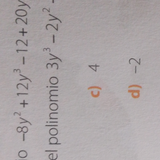 io −8y² + 12y³ − 12 + 20y
el polinomio 3y³ − 2y² −
c) 4
d) −2